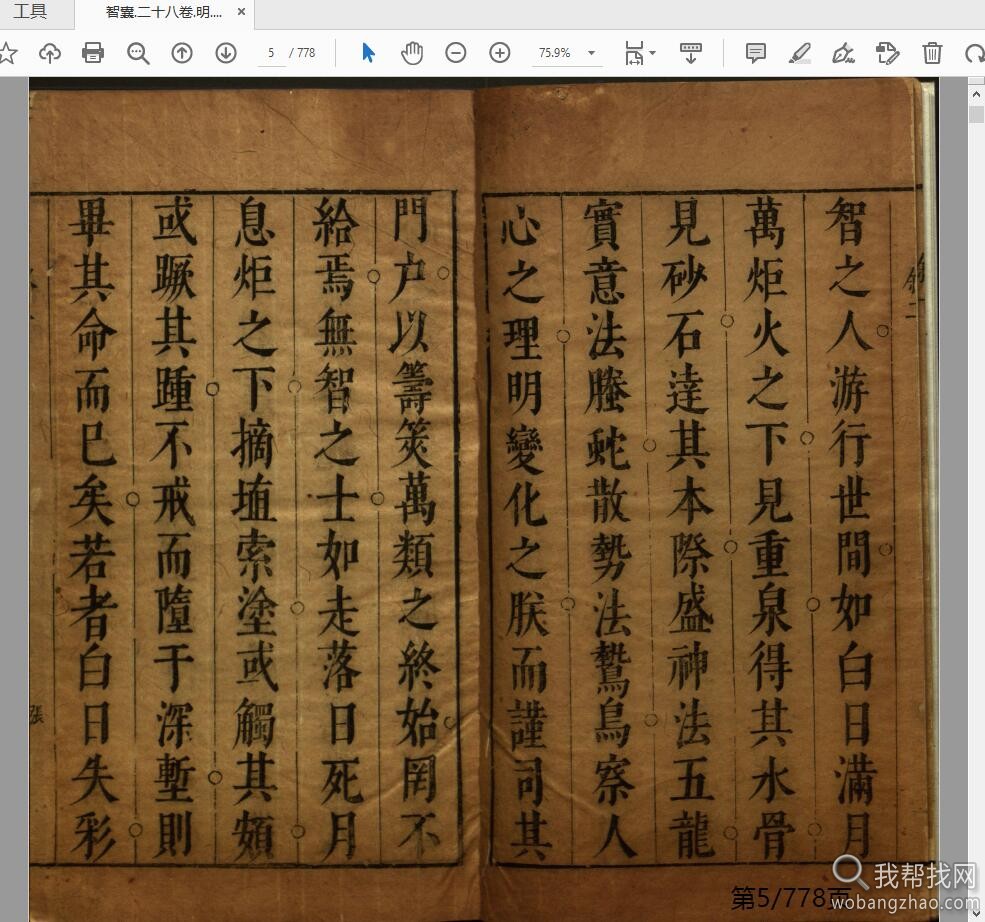 工具
智囊.二十八卷.明....
5 / 778
75.9%
智之人游行世間如白日滿月
萬炬火之下見重泉得其水骨
見砂石達其本際盛神法五龍
實意法螣虵散勢法鷙鳥察人
心之理明變化之朕而謹司其
門户以籌筴萬類之終始罔不
給焉無智之士如走落日死月
息炬之下摘埴索塗或觸其頞
或蹶其踵不戒而墮于深塹則
畢其命而已矣若者白日失彩
張
第5/778页
我帮找网
wobangzhao.com